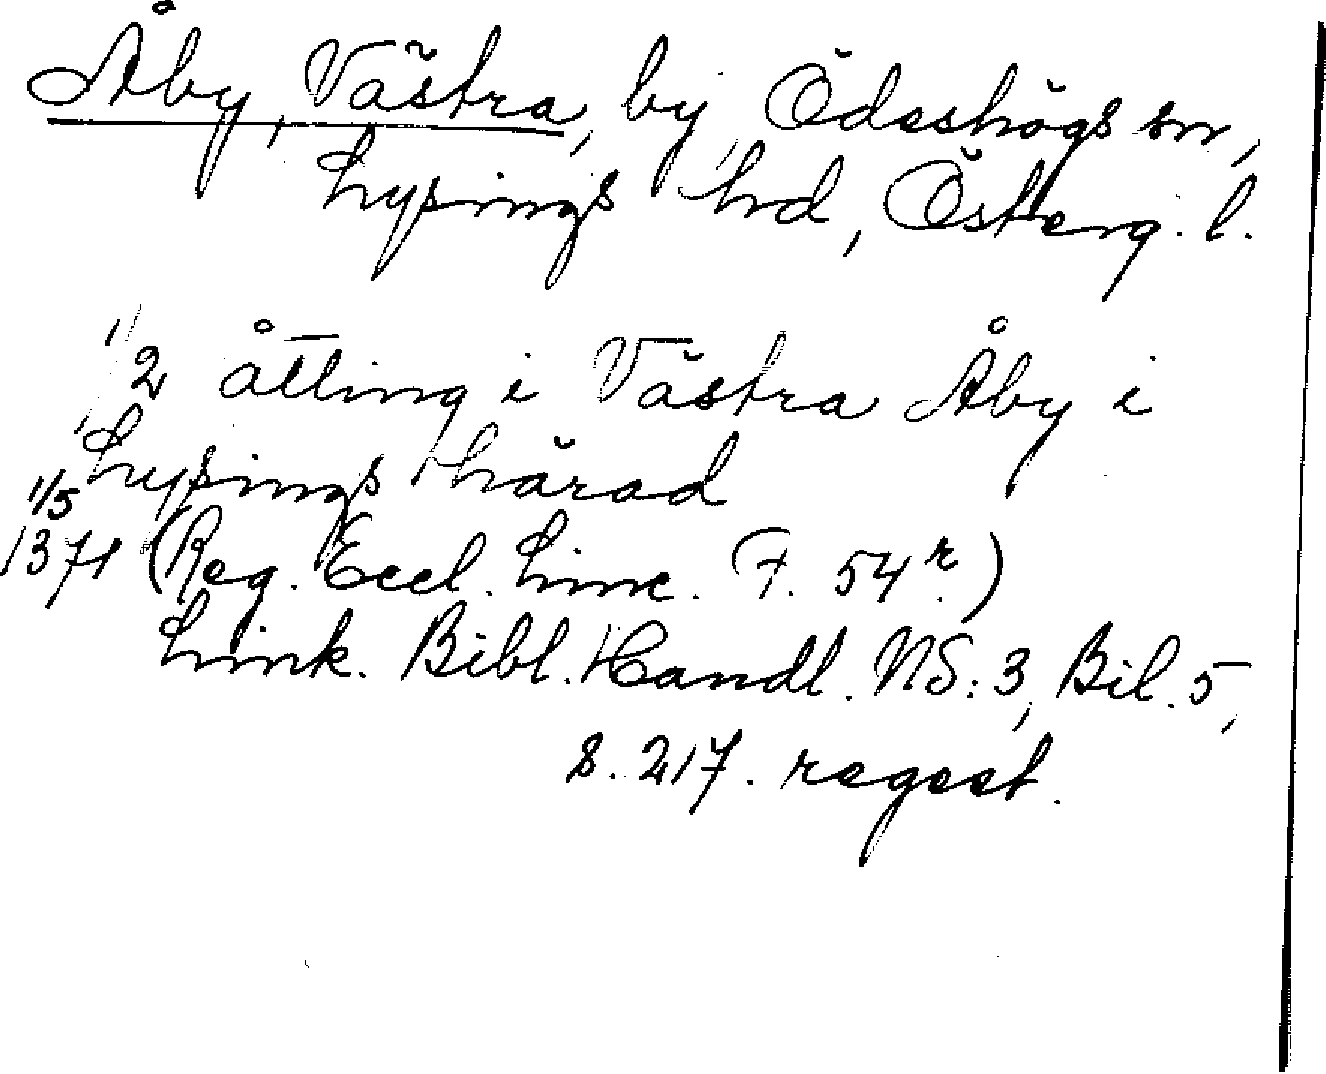 Åby, Västra, by Ödeshögs sn,
Lysings hd, Österg. l.
1/2 åtting i Västra Åby i
Lysings härad
1/5
1371 (Reg. Eccl. Linc. F. 54r.)
Link. Bibl. Handl. NS: 3, Bil. 5,
s. 217. regest.